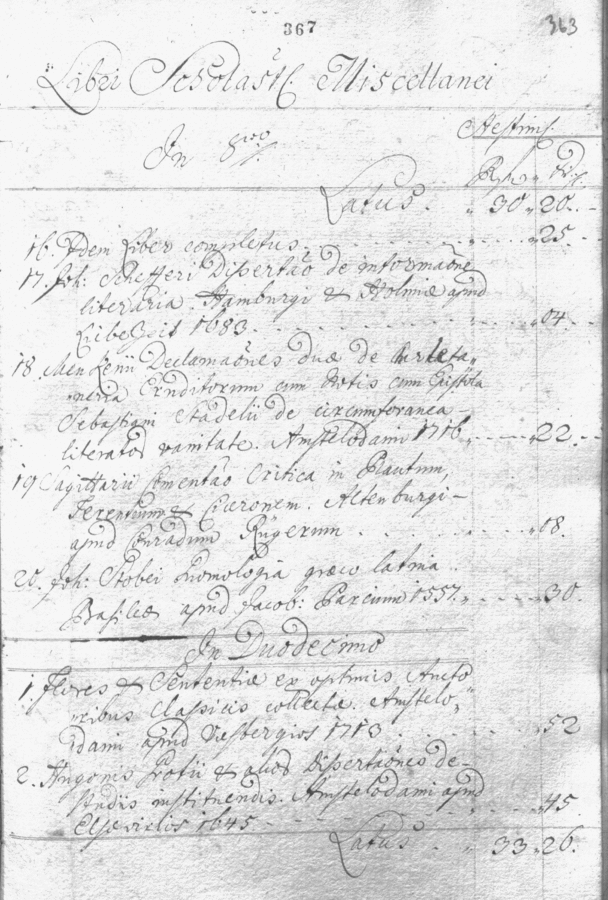 367
363
Libri Scholast. Miscellanei
Aestim.
In 8vo
Latus. 30 20.
16. Idem Liber completus. 25.
17. Joh: Schefferi Dissertaõ de informaõne
literaria. Hamburgi & Holmiæ apud
Liebezeit 1683. 04.
18. Menkenii Declamaõnes duæ de Charlata„
neria Eruditorum cum Notis cum Epistola
Sebastiani Stadelii de circumforanea
literatos vanitate. Amstelodami 1716. 22.
19 Sagittarii Comentaõ Critica in Plautum,
Terentium & Ciceronem. Altenburgi
apud Conradum Rügerum 18.
20. Joh: Stobei Gnomologia græco latina
Basileæ apud Jacob: Parcum 1557. 30.
In Duodecimo
1. Flores & Sententiæ ex optimis Aucto
ribus Classicis collectæ. Amstelo„
dami apud Vasbergios 1713. 52
2. Hugonis Grotii & alios Dissertaõnes de
Studiis instituendis. Amstelodami apud
Elsevirios 1645. 45.
Latus. 33 26.